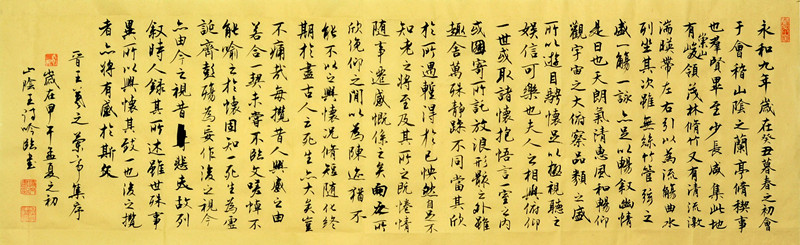 永和九年歲在癸丑暮春之初會
于會稽山陰之蘭亭脩稧事
也群賢畢至少長咸集此地
有崇山峻領茂林脩竹又有清流激
湍暎帶左右引以為流觴曲水
列坐其次雖無絲竹管弦之
盛一觴一詠亦足以暢叙幽情
是日也天朗氣清惠風和暢仰
觀宇宙之大俯察品類之盛
所以遊目騁懷足以極視聽之
娛信可樂也夫人之相與俯仰
一世或取諸懷抱悟言一室之內
或因寄所託放浪形骸之外雖
趣舍萬殊靜躁不同當其欣
於所遇暫得於己怏然自足不
知老之將至及其所之既惓情
隨事遷感慨係之矣向之所
欣俛仰之閒以為陳迹猶不
能不以之興懷況脩短隨化終
期於盡古人云死生亦大矣豈
不痛哉每攬昔人興感之由
若合一契未嘗不臨文嗟悼不
能喻之於懷固知一死生為虛
誕齊彭殤為妄作後之視今
亦由今之視昔悲夫故列
叙時人錄其所述雖世殊事
異所以興懷其致一也後之攬
者亦將有感於斯文
晉王羲之蘭亭集序
歲在甲午孟夏之初
山陰王詩吟臨